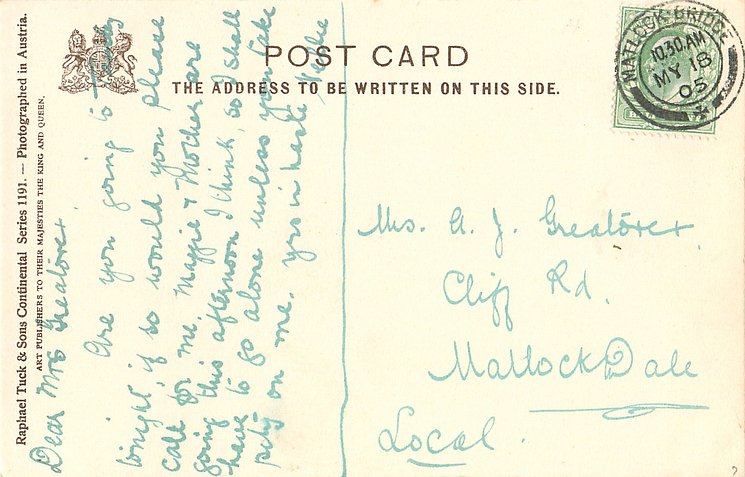 POST CARD
THE ADDRESS TO BE WRITTEN ON THIS SIDE.
Raphael Tuck & Sons Continental Series 1191. — Photographed in Austria.
ART PUBLISHERS TO THEIR MAJESTIES THE KING AND QUEEN.
MATLOCK-BRIDGE
10.30 AM
MY 18
05
Dear Mrs Greatorex
Are you going to
tonight, if so would you please
call for me. Maggie & Mother are
going this afternoon I think, so I shall
have to go alone unless you take
pity on me. yrs in haste
Mrs. A. J. Greatorex
Cliff Rd.
Matlock Dale
Local.